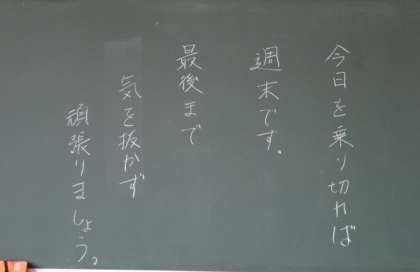 今日を乗り切れば
週末です。
最後まで
気を抜かず
頑張りましょう。